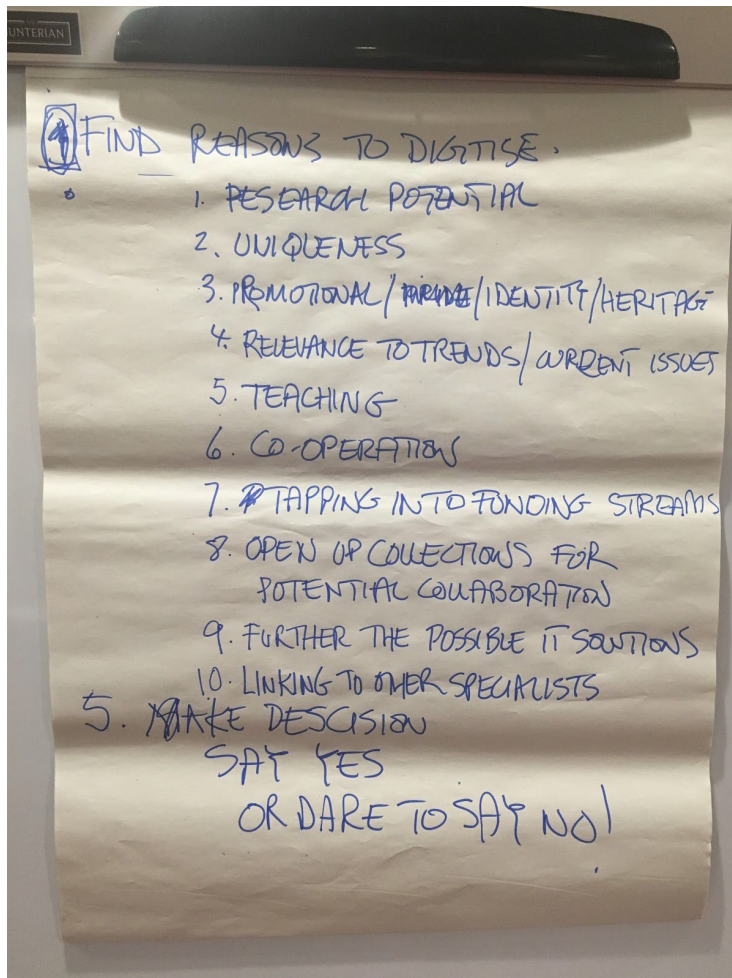 UNTERIAN
FIND REASONS TO DIGITISE.
1. RESEARCH POTENTIAL
2. UNIQUENESS
3. PROMOTIONAL / /IDENTITY/HERITAGE
4. RELEVANCE TO TRENDS/CURRENT ISSUES
5. TEACHING
6. CO-OPERATION
7. TAPPING INTO FUNDING STREAMS
8. OPEN UP COLLECTIONS FOR
POTENTIAL COLLABORATION
9. FURTHER THE POSSIBLE IT SOLUTIONS
10. LINKING TO OTHER SPECIALISTS
5. MAKE DESCISION
SAY YES
OR DARE TO SAY NO!